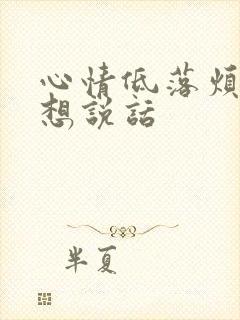 心情低落煩
想說話
半夏